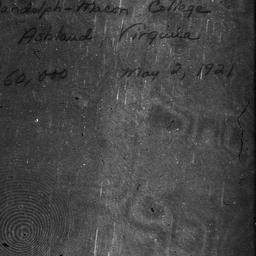 andolph-Macon College
Ashland, Virginia
60,000 May 2, 1921